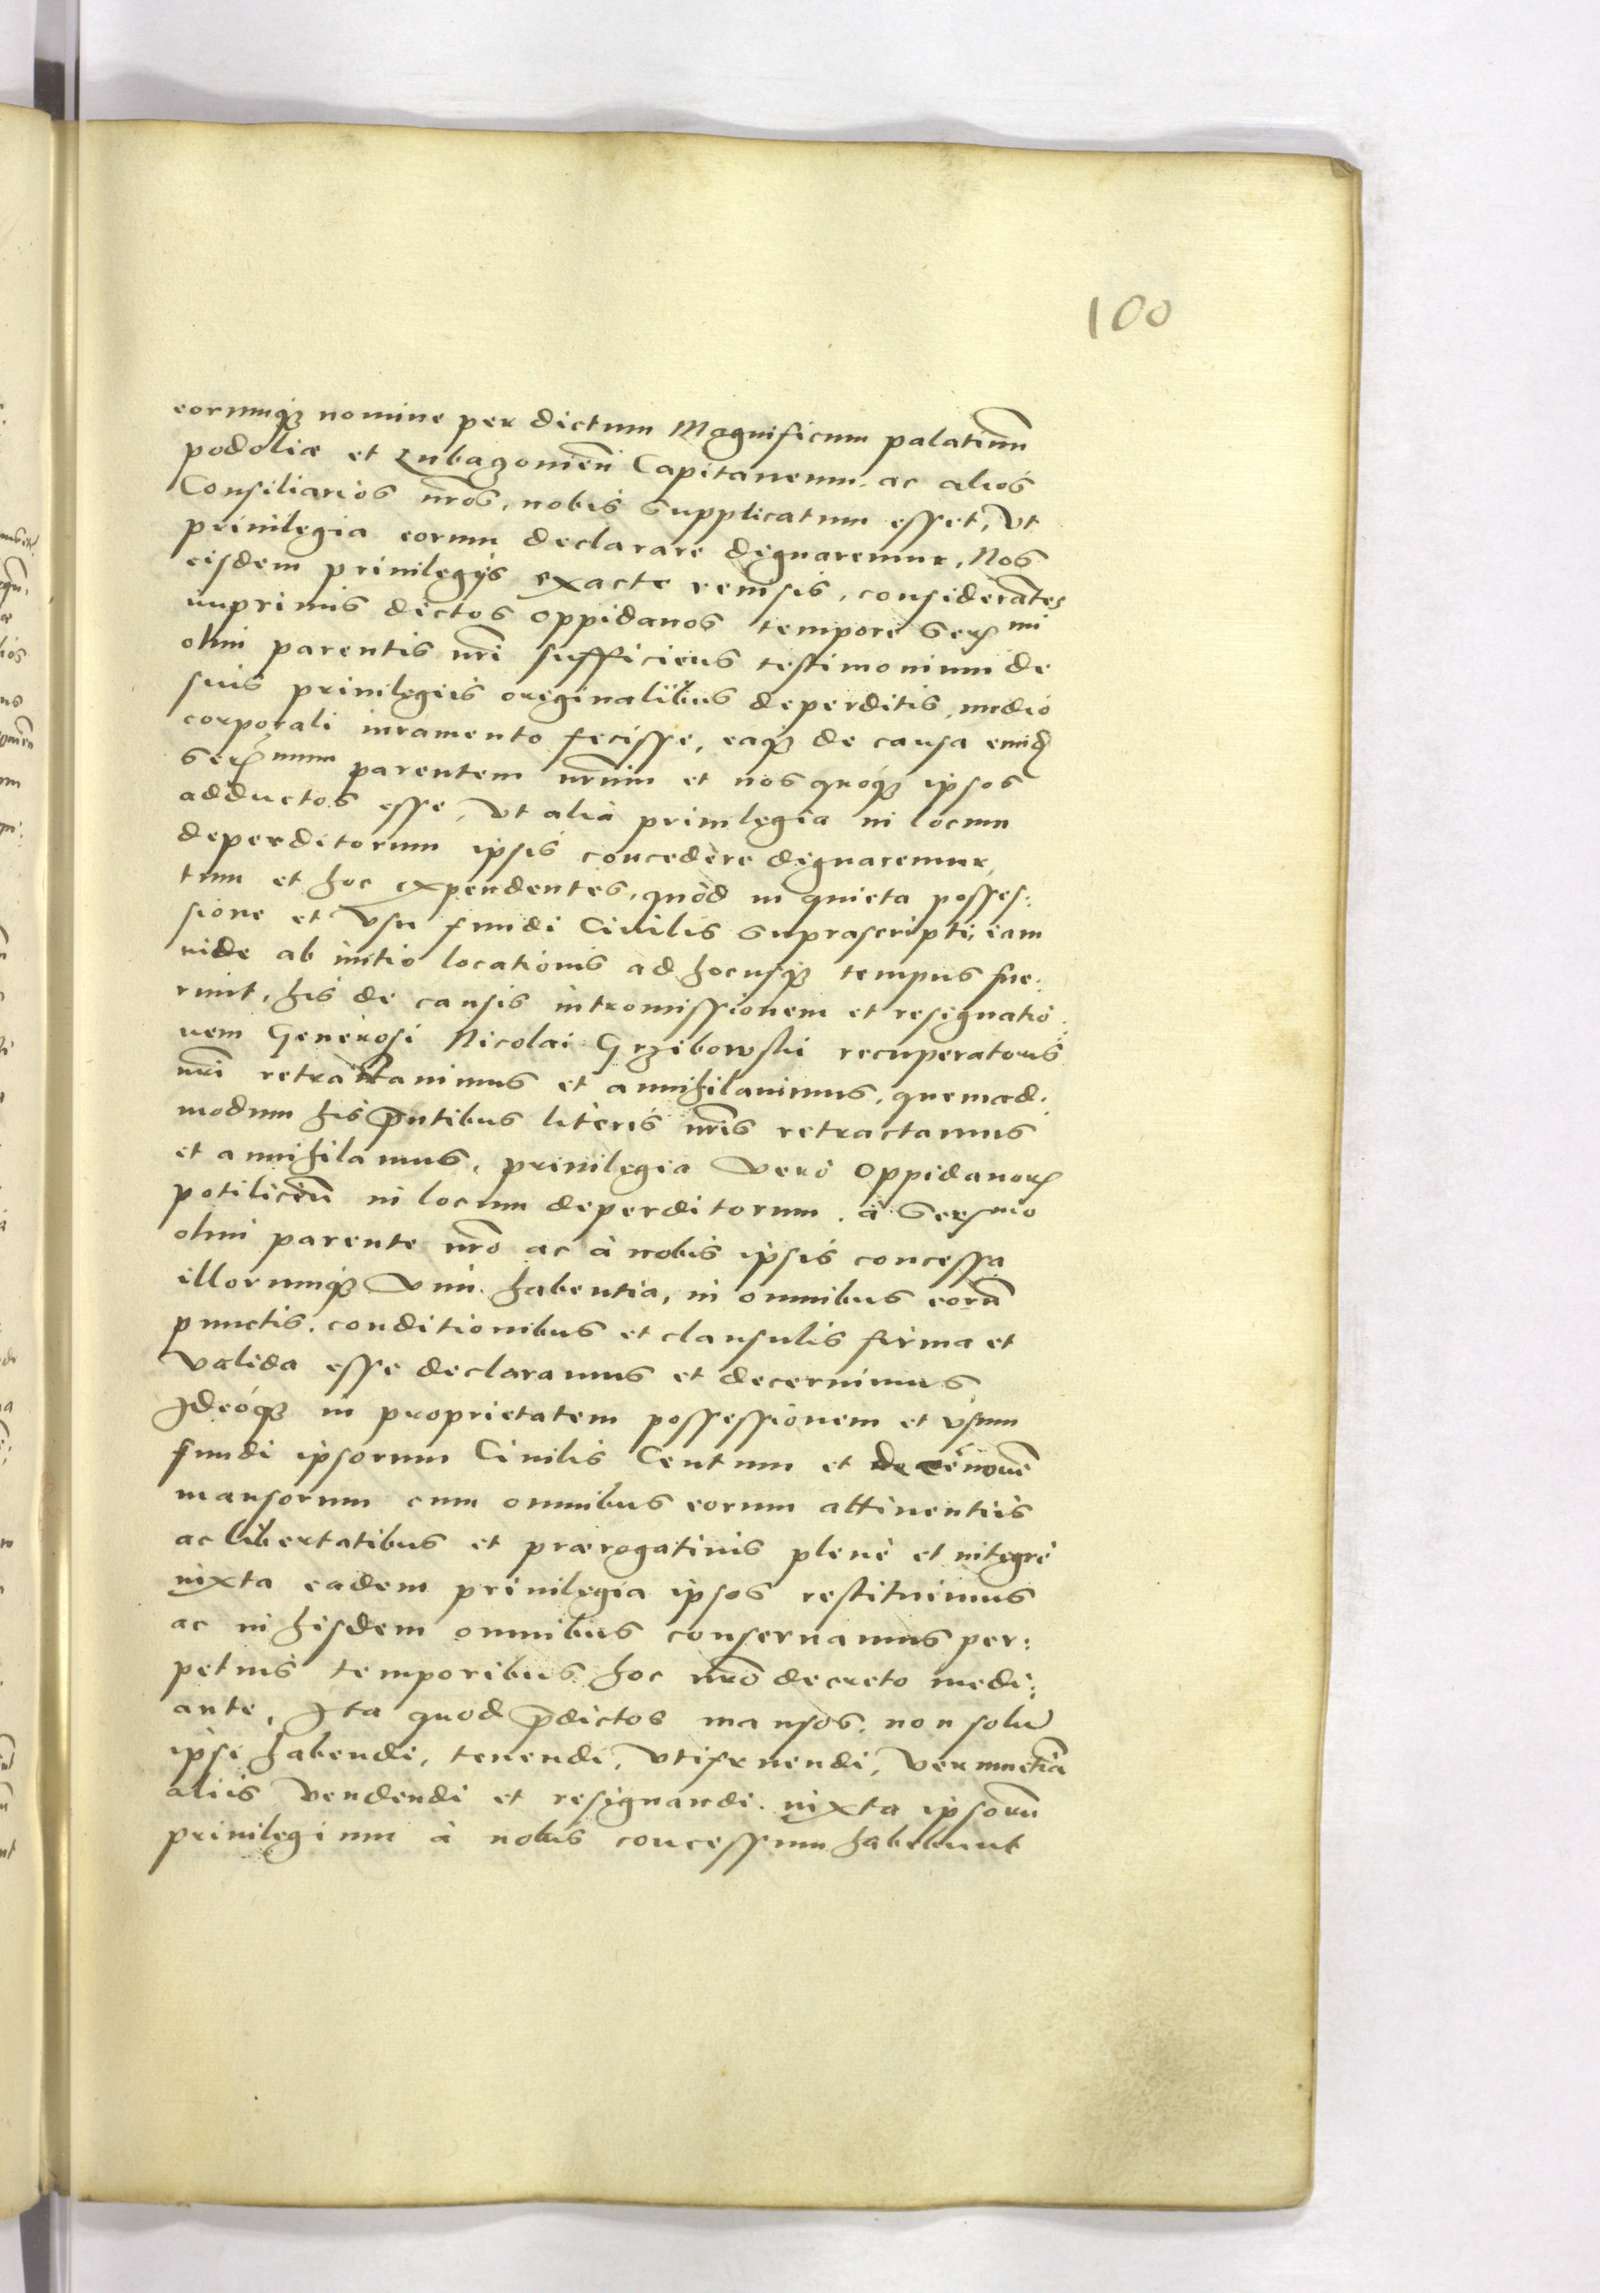 100
eorumqꝫ nomine per dictum Magnificum palatinũ
podoliæ et Lubaczoviẽn Capitaneum. ac alios
Consiliarios nr̃os, nobis supplicatum esset, vt
priuilegia eorum declarare dignaremur. Nos
eisdem priuilegijs exacte reuisis, considerãtes
imprimis dictos oppidanos tempore Serᵐⁱ
olim parentis nr̃i sufficiens testimonium de
suis priuilegiis originalibus deperditis, medió
corporali iuramento fecisse, eaqꝫ de causa eund
Serᵉⁿⁿᵘᵐ parentem nr̃um et nos quoqꝫ ipsos
adductos esse, vt alia priuilegia in locum
deperditorum ipsis concedere dignaremur,
tum et hoc expendentes, quòd in quieta posses:
sione et vsu fundi Ciuilis suprascripti, iam
inde ab initio locationis ad hocusqꝫ tempus fue:
rint, his de causis intromissionem et resignatio:
nem Generosi Nicolai Grzibowski recuperatoris
nr̃i retractauimus et annihilauimus, quemad:
modum his p̃ntibus literis nr̃is retractamus
et annihilamus, priuilegia verò oppidanorꝝ
potiliciẽn in locum deperditorum. à Serᵐᵒ
olim parente nr̃o ac à nobis ipsis concessa
illorumqꝫ vim habentia, in omnibus eorũ
punctis, conditionibus et clausulis firma et
valida esse declaramus et decernimus
Ideóqꝫ in proprietatem possessionem et vsum
fundi ipsorum Ciuilis Centum et decẽnouẽ
mansorum cum omnibus eorum attinentiis
ac libertatibus et prærogatiuis plenè et integrè
iuxta eadem priuilegia ipsos restituimus
ac in hisdem omnibus conseruamus per:
petuis temporibus hoc nr̃o decreto medi:
ante, Ita quod p̃dictos mansos, non solũ
ipsi habendi, tenendi, vtifruendi, verumetiã
aliis vendendi et resignandi. iuxta ipsorũ
priuilegium à nobis concessum habebunt